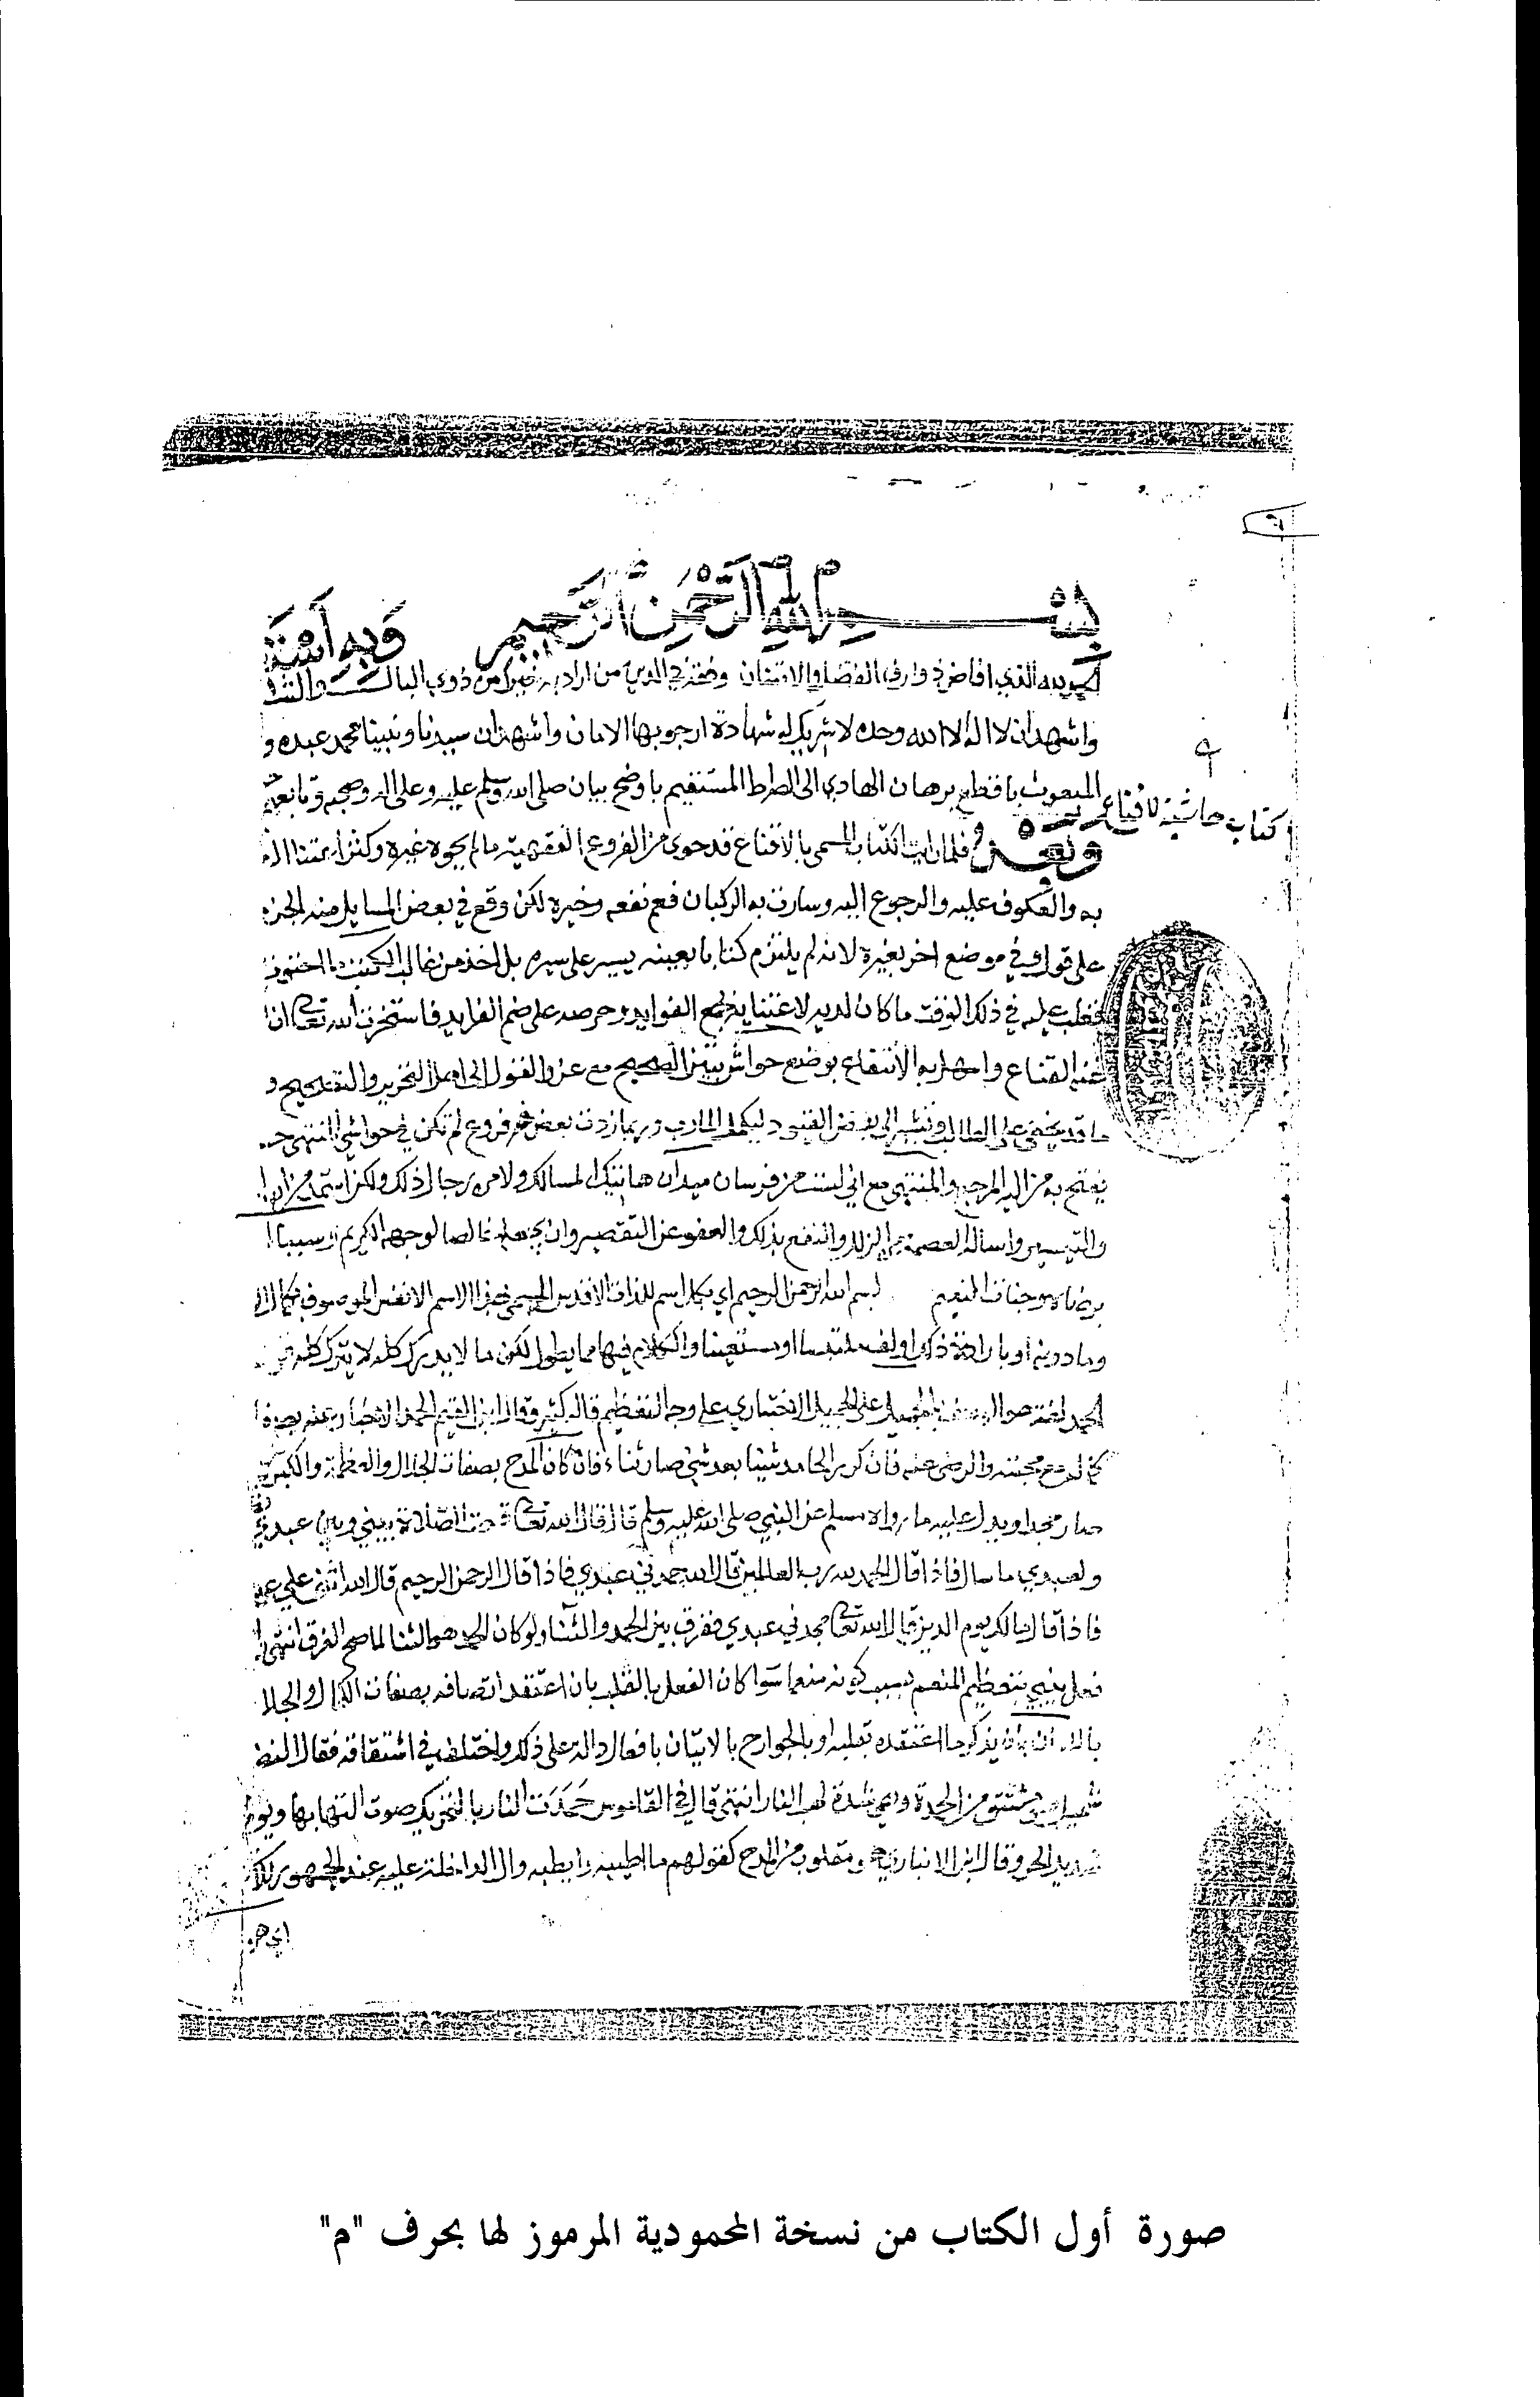 بسم الله الرحمن الرحيم وبه
الحمد لله الذي افاض ذوارف الفضل والامتنان وفقه في الدين من اراد به خيرا من ذوي
واشهد ان لا اله الا الله وحده لا شريك له شهادة ارجو بها الامان واشهد ان سيدنا ونبينا محمد عبده و
المبعوث باقطع برهان الهادي الى الصراط المستقيم باوضح بيان صلى الله وسلم عليه وعلى اله وصحبه
كتاب حاشية الاقناع
وبعد فلما رايت الكتاب المسمى بالاقناع قد حوى من الفروع الفقهية ما لم يحوه غيره وكنز
به والعكوف عليه والرجوع اليه وسارت به الركبان فعم نفعه وخيره لكن وقع في بعض المسايل منه
على قول وفي موضع اخر بغيره لانه لم يلتزم كتابا بعينه يسير على سيره بل اخذ من غالب الكتب
في ذلك الوقت ما كان لديه لاعتنايه بجمع الفوايد وحرصه على ضم الفرايد فاستخرت الله تعالى ان
عنه القناع به الانتفاع بوضع حواش تبين الصحيح مع عزو القول الى اهل التحرير والتصحيح و
ما قد يخفى على الطالب وتشير الى بعض القيود ليكمل المارب وربما زدت بعض فروع لم تكن في حواشي المنتهى
يفتح به من اليه المرجع والمنتهى مع اني لست من فرسان ميدان هاتيك المسالك ولا من رجال ذلك ولكن
والتيسير واساله العصمة من الزلل والنفع بذلك والعفو عن التقصير وان يجعله خالصا لوجهه الكريم وسببا
جنات النعيم بسم الله الرحمن الرحيم اي بكل اسم للذات الاقدس المسمى بهذا الاسم الانفس الموصوف بكمال
وما دونه او بارادة ذكر اولف ملتبسا او مستعينا والكلام فيها مما يطول لكن ما لا يدرك كله لا يترك كله
الحمد لغة هو الوصف بالجميل على الجميل الاختياري على وجه التعظيم قاله كثير وقال ابن القيم الحمد الاخبار عنه بصفات
كماله مع محبته والرضى عنه فان كرر الحامد شيئا بعد شي صار ثناء فان كان المدح بصفات الجلال والعظمة والكبريا
صار مجدا ويدل عليه ما رواه مسلم عن النبي صلى الله عليه وسلم قال قال الله تعالى قسمت الصلاة بيني وبين عبدي
ولعبدي ما سال فاذا قال الحمد لله رب العالمين قال الله حمدني عبدي فاذا قال الرحمن الرحيم قال الله اثنى علي
فاذا قال مالك يوم الدين قال الله تعالى مجدني عبدي ففرق بين الحمد والثنا ولو كان الحمد هو الثنا لما صح الفرق انتهى
فعل ينبي بتعظيم المنعم بسبب كونه منعما سوا كان الفعل بالقلب بان اعتقد اتصافه بصفات الكمال والجلال
بان يذكر ما اعتقده بقلبه او بالجوارح بالاتيان بافعال دالة على ذلك واختلف في اشتقاقه فقال النضر
مشتق من الحمدة وهي شدة لهب النار انتهى قال في القاموس حمدت النار بالتحريك صوت التهابها ويوم
شديد الحر وقال ابن الانباري هو مقلوب من المدح كقولهم ما اطيبه وايطبه وال الداخلة عليه عند الجمهور
صورة أول الكتاب من نسخة المحمودية المرموز لها بحرف "م"